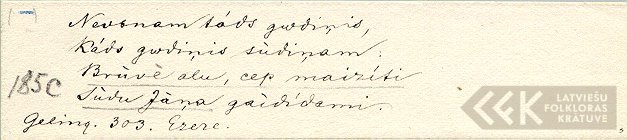 Nevonam tāds gudiņis,
Kāds gudiņis sūdiņam:
Brūvē alu, cep maizīti
Sūdu Jāņa gaidīdami.
185C
Geling. 303. Ezere.
LATVIEŠU
FOLKLORAS
KRĀTUVE